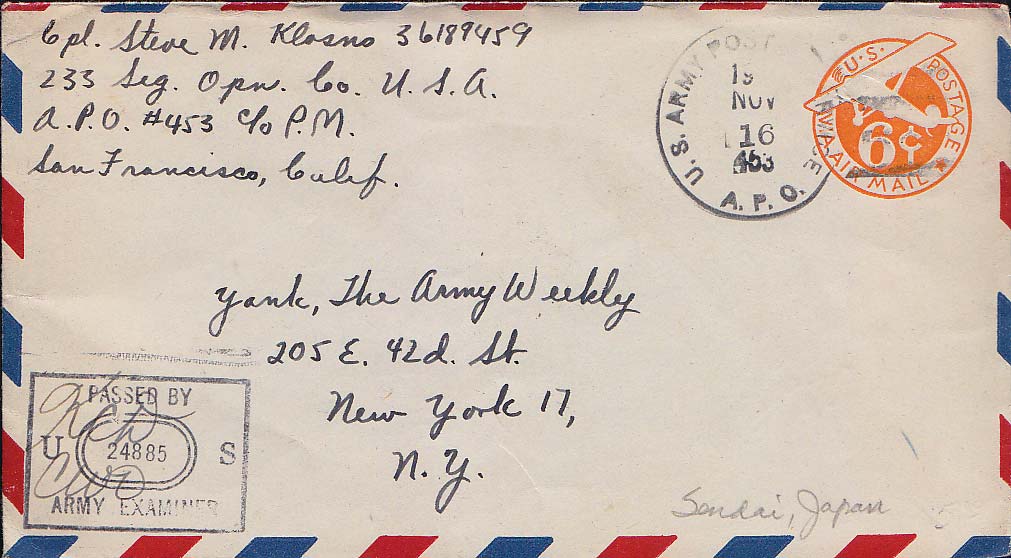 Cpl. Steve M. Klosno 36189459
233 Seg. Opn. Co. U.S.A.
A.P.O. #453 c/o P.M.
San Francisco, Calif.
U.S. ARMY POSTAL
19
NOV
16
453
A.P.O.
U.S. POSTAGE
6¢
VIA AIR MAIL
Yank, The Army Weekly
205 E. 42d. St.
New York 17,
N.Y.
PASSED BY
U 24885 S
ARMY EXAMINER
CWO
Sendai, Japan